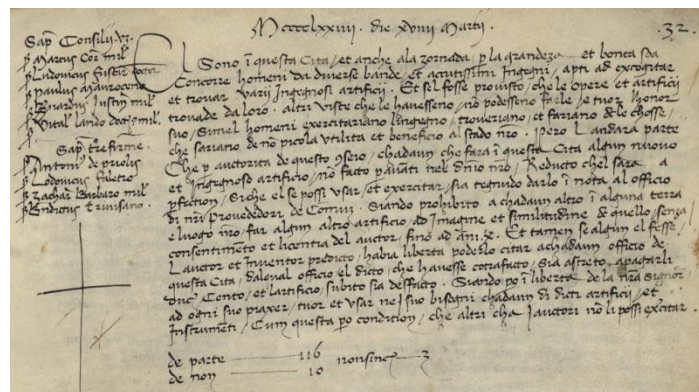 Mcccclxxiiii. die xviiii Martii.
32.
Sap. Consilii
Marcus Cor. mil.
Ludovicus
paulus Maurocenus
Vital lando doct. mil.
Sap. terre firme.
Antoni de priolis
Zachar barbaro mil.
El Sono i questa Cita, et anche ala zornada, p la grandeza et bonta soa
Concorre homeni da diverse bande, et acutissimi Ingegni, apti ad excogitar
et trovar Varii Ingegnosi artificii. Et sel fesse provisto, che le opere et artificii
trovade da loro, altri viste che le havesseno, no podesseno farle, e tuor l honor
suo, Simel homeni exercitariano l ingegno, troveriano, et fariano dele chosse,
che sariano de no picola utilita et beneficio al stado nro. Pero l andara parte
Che p auctorita de questo 9seio, chadaun che fara i questa Cita algun nuovo
et Ingegnoso artificio, no facto p avati nel dnio nro, Reducto chel sara a
pfection, Siche el se possi usar, et exercitar, sia tegnudo darlo i nota al officio
di nri provededori de Comun. Siando prohibito a chadaun altro i alguna terra
e luogo nro, far algun altro artificio, ad Imagine et similitudine de quello, senza
consentimento et licentia del auctor, fino ad ani X. Et tamen se algun el fesse,
L auctor et Inventor predicto, habia liberta poderlo citar a chadaun officio de
questa Cita, dal qual officio el dicto, che havesse cotrafacto, Sia astreto, a pagarli
duc. Cento, et l artificio, subito sia desfacto. Siando po i liberta de la nra Signori
ad ogni suo piaxer, tuor et usar nei suo bisogni chadaun di dicti artificii, et
Instrumeti, Cum questa po condition, che altri cha i auctori no li possi exercitar.
de parte 116 3
de non 10